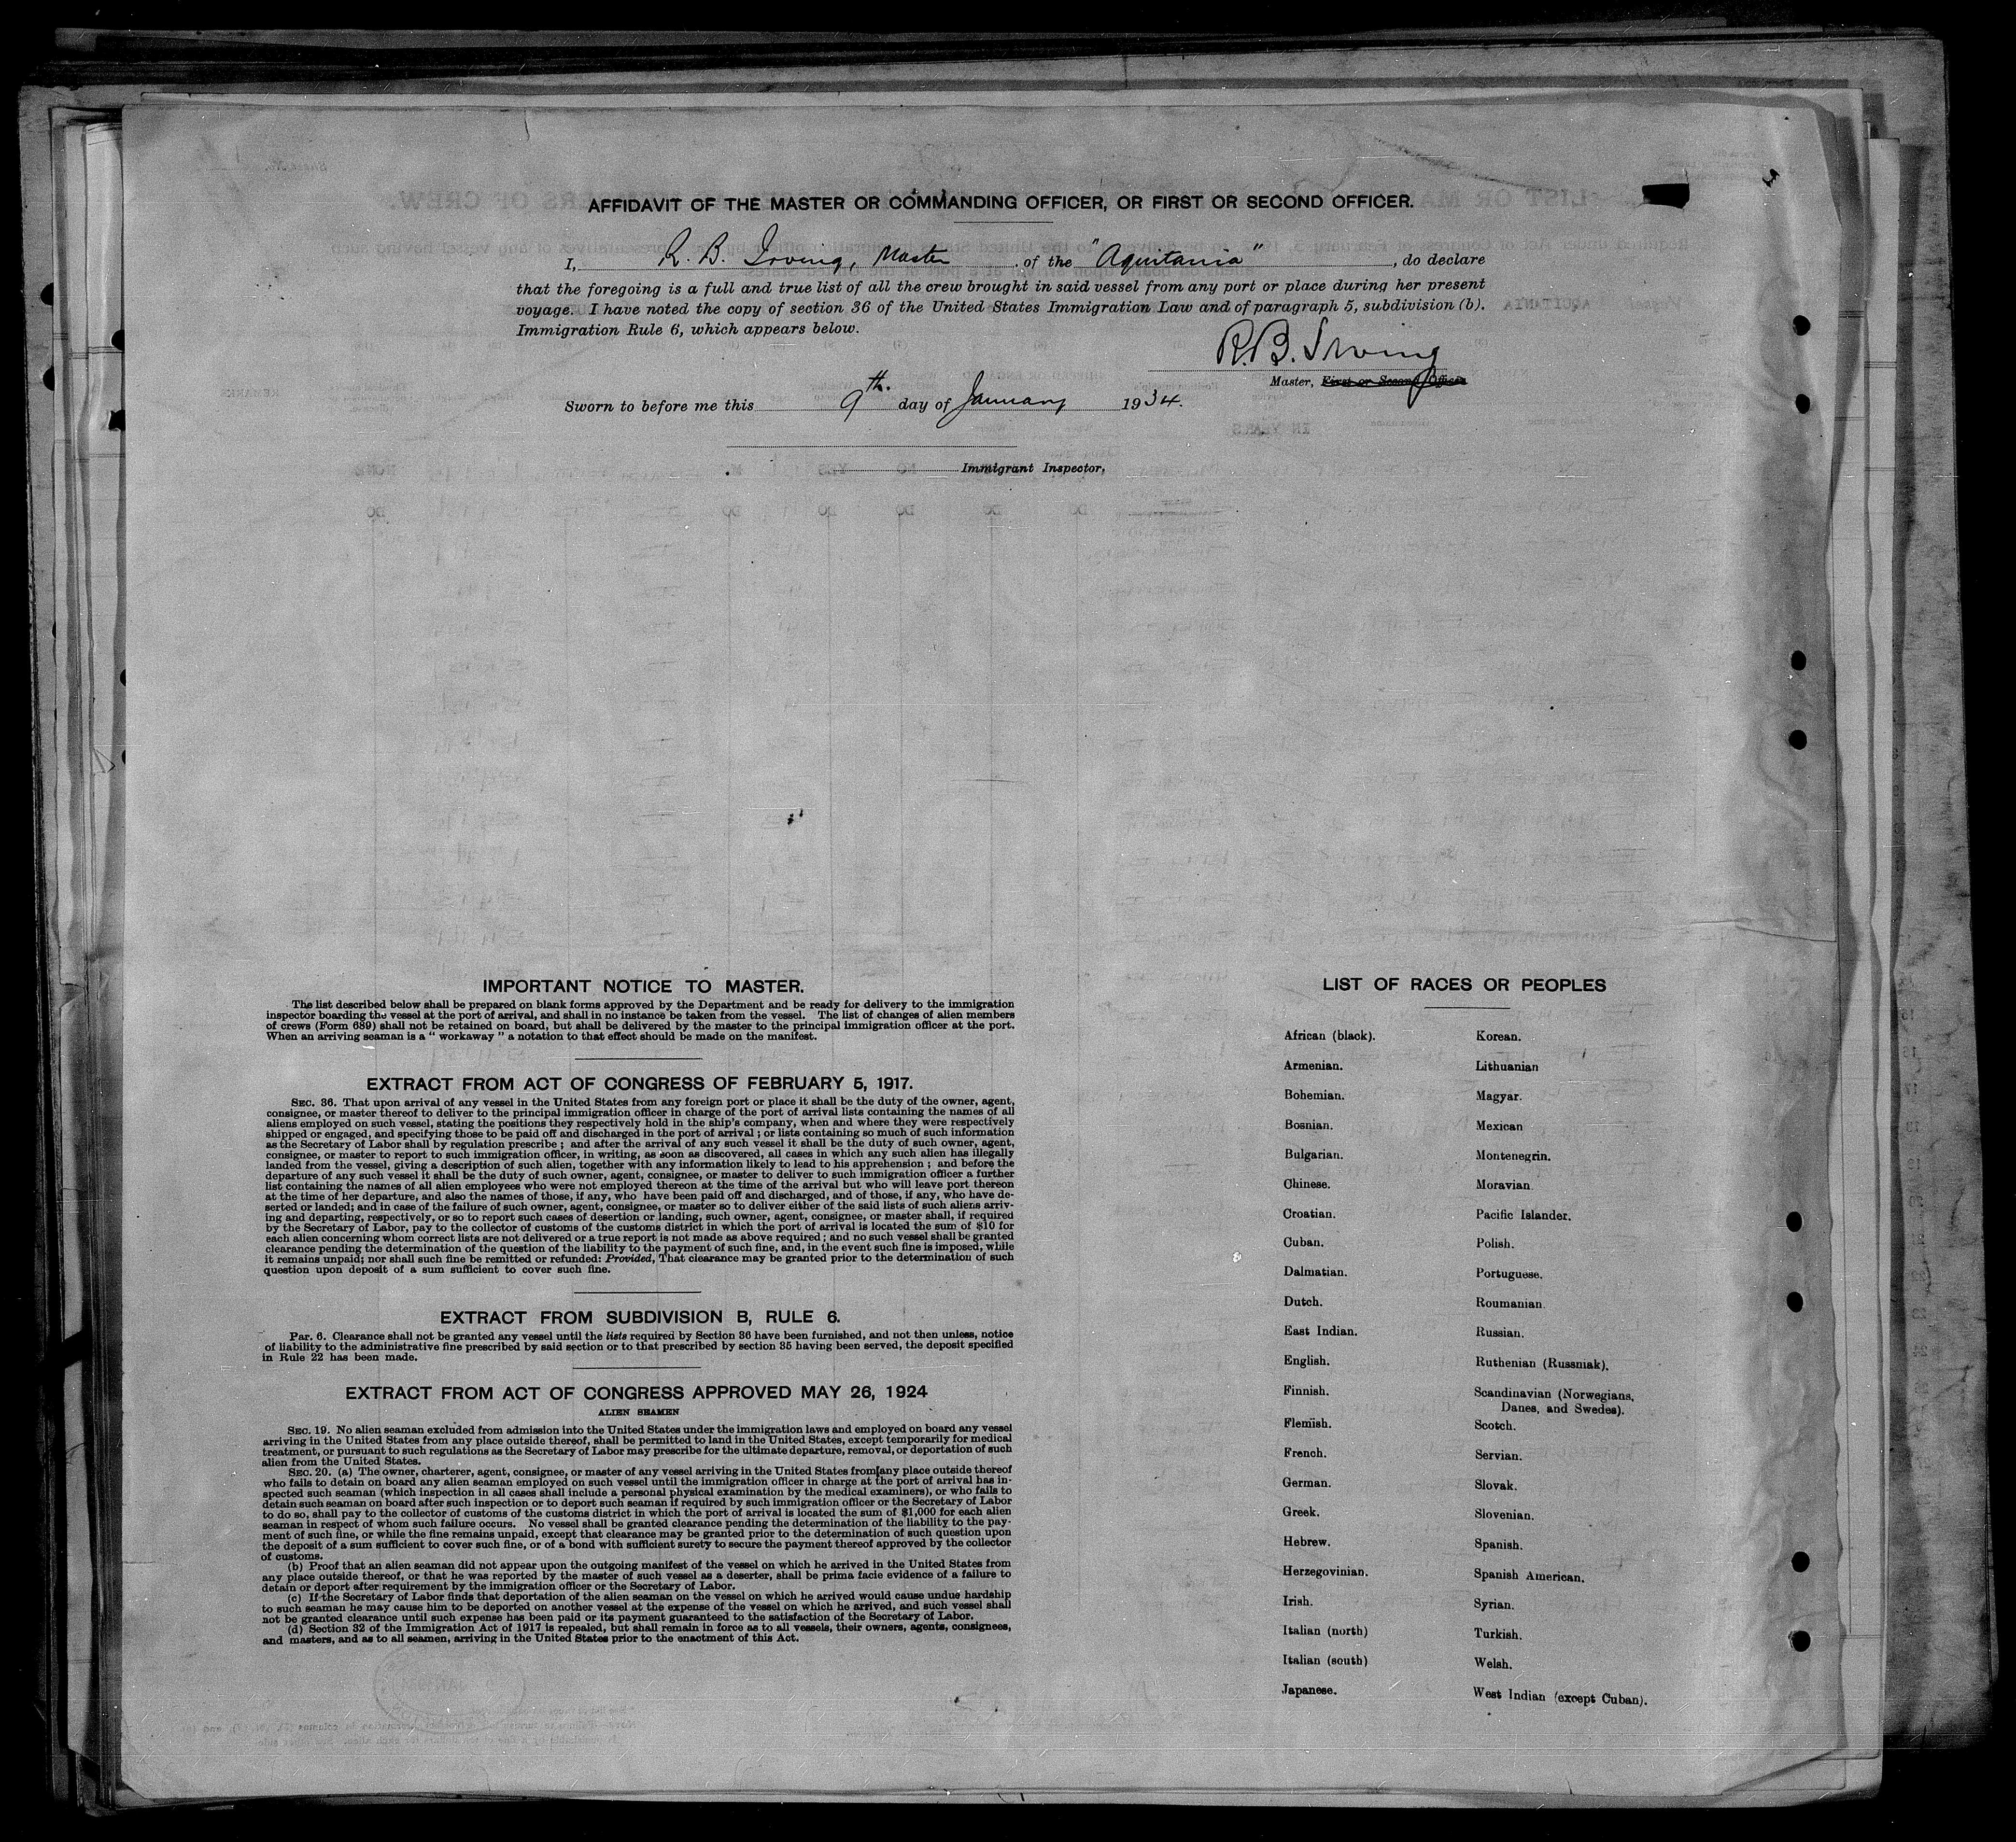 AFFIDAVIT OF THE MASTER OR COMMANDING OFFICER, OR FIRST OR SECOND OFFICER.
I, R. B. Irving, Master of the "Aquitania", do declare
that the foregoing is a full and true list of all the crew brought in said vessel from any port or place during her present
voyage. I have noted the copy of section 36 of the United States Immigration Law and of paragraph 5, subdivision (b).
Immigration Rule 6, which appears below.
R.B. Irving
Master, First or Second Officer
Sworn to before me this 9th. day of January 1934.
Immigrant Inspector.
IMPORTANT NOTICE TO MASTER.
The list described below shall be prepared on blank forms approved by the Department and be ready for delivery to the immigration
inspector boarding the vessel at the port of arrival, and shall in no instance be taken from the vessel. The list of changes of alien members
of crews (Form 689) shall not be retained on board, but shall be delivered by the master to the principal immigration officer at the port.
When an arriving seaman is a " workaway " a notation to that effect should be made on the manifest.
EXTRACT FROM ACT OF CONGRESS OF FEBRUARY 5, 1917.
SEC. 36. That upon arrival of any vessel in the United States from any foreign port or place it shall be the duty of the owner, agent,
consignee, or master thereof to deliver to the principal immigration officer in charge of the port of arrival lists containing the names of all
aliens employed on such vessel, stating the positions they respectively hold in the ship's company, when and where they were respectively
shipped or engaged, and specifying those to be paid off and discharged in the port of arrival ; or lists containing so much of such information
as the Secretary of Labor shall by regulation prescribe ; and after the arrival of any such vessel it shall be the duty of such owner, agent,
consignee, or master to report to such immigration officer, in writing, as soon as discovered, all cases in which any such alien has illegally
landed from the vessel, giving a description of such alien, together with any information likely to lead to his apprehension ; and before the
departure of any such vessel it shall be the duty of such owner, agent, consignee, or master to deliver to such immigration officer a further
list containing the names of all alien employees who were not employed thereon at the time of the arrival but who will leave port thereon
at the time of her departure, and also the names of those, if any, who have been paid off and discharged, and of those, if any, who have de-
serted or landed; and in case of the failure of such owner, agent, consignee, or master so to deliver either of the said lists of such aliens arriv-
ing and departing, respectively, or so to report such cases of desertion or landing, such owner, agent, consignee, or master shall, if required
by the Secretary of Labor, pay to the collector of customs of the customs district in which the port of arrival is located the sum of $10 for
each alien concerning whom correct lists are not delivered or a true report is not made as above required ; and no such vessel shall be granted
clearance pending the determination of the question of the liability to the payment of such fine, and, in the event such fine is imposed, while
it remains unpaid; nor shall such fine be remitted or refunded: Provided, That clearance may be granted prior to the determination of such
question upon deposit of a sum sufficient to cover such fine.
EXTRACT FROM SUBDIVISION B, RULE 6.
Par. 6. Clearance shall not be granted any vessel until the lists required by Section 36 have been furnished, and not then unless, notice
of liability to the administrative fine prescribed by said section or to that prescribed by section 35 having been served, the deposit specified
in Rule 22 has been made.
EXTRACT FROM ACT OF CONGRESS APPROVED MAY 26, 1924
ALIEN SEAMEN
SEC. 19. No alien seaman excluded from admission into the United States under the immigration laws and employed on board any vessel
arriving in the United States from any place outside thereof, shall be permitted to land in the United States, except temporarily for medical
treatment, or pursuant to such regulations as the Secretary of Labor may prescribe for the ultimate departure, removal, or deportation of such
alien from the United States.
SEC. 20. (a) The owner, charterer, agent, consignee, or master of any vessel arriving in the United States from any place outside thereof
who fails to detain on board any alien seaman employed on such vessel until the immigration officer in charge at the port of arrival has in-
spected such seaman (which inspection in all cases shall include a personal physical examination by the medical examiners), or who fails to
detain such seaman on board after such inspection or to deport such seaman if required by such immigration officer or the Secretary of Labor
to do so, shall pay to the collector of customs of the customs district in which the port of arrival is located the sum of $1,000 for each alien
seaman in respect of whom such failure occurs. No vessel shall be granted clearance pending the determination of the liability to the pay-
ment of such fine, or while the fine remains unpaid, except that clearance may be granted prior to the determination of such question upon
the deposit of a sum sufficient to cover such fine, or of a bond with sufficient surety to secure the payment thereof approved by the collector
of customs.
(b) Proof that an alien seaman did not appear upon the outgoing manifest of the vessel on which he arrived in the United States from
any place outside thereof, or that he was reported by the master of such vessel as a deserter, shall be prima facie evidence of a failure to
detain or deport after requirement by the immigration officer or the Secretary of Labor.
(c) If the Secretary of Labor finds that deportation of the alien seaman on the vessel on which he arrived would cause undue hardship
to such seaman he may cause him to be deported on another vessel at the expense of the vessel on which he arrived, and such vessel shall
not be granted clearance until such expense has been paid or its payment guaranteed to the satisfaction of the Secretary of Labor.
(d) Section 32 of the Immigration Act of 1917 is repealed, but shall remain in force as to all vessels, their owners, agents, consignees,
and masters, and as to all seamen, arriving in the United States prior to the enactment of this Act.
LIST OF RACES OR PEOPLES
African (black).
Armenian.
Bohemian.
Bosnian.
Bulgarian.
Chinese.
Croatian.
Cuban.
Dalmatian.
Dutch.
East Indian.
English.
Finnish.
Flemish.
French.
German.
Greek.
Hebrew.
Herzegovinian.
Irish.
Italian (north)
Italian (south)
Japanese.
Korean.
Lithuanian
Magyar.
Mexican
Montenegrin.
Moravian.
Pacific Islander.
Polish.
Portuguese.
Roumanian.
Russian.
Ruthenian (Russniak).
Scandinavian (Norwegians,
Danes, and Swedes).
Scotch.
Servian.
Slovak.
Slovenian.
Spanish.
Spanish American.
Syrian.
Turkish.
Welsh.
West Indian (except Cuban).